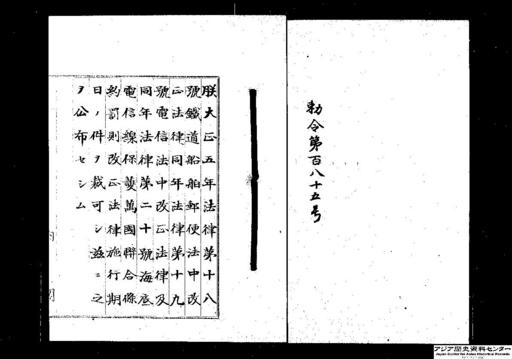 勅令第百八十五号
朕大正五年法律第十八
號鐵道船舶郵便法中改
正法律同年法律第十九
號電信法中改正法律及
同年法律第二十號海底
電信線保護萬國聯合條
約罰則改正法律施行期
日ノ件ヲ裁可シ茲ニ之
ヲ公布セシム
アジア歴史資料センター
Japan Center for Asian Historical Records